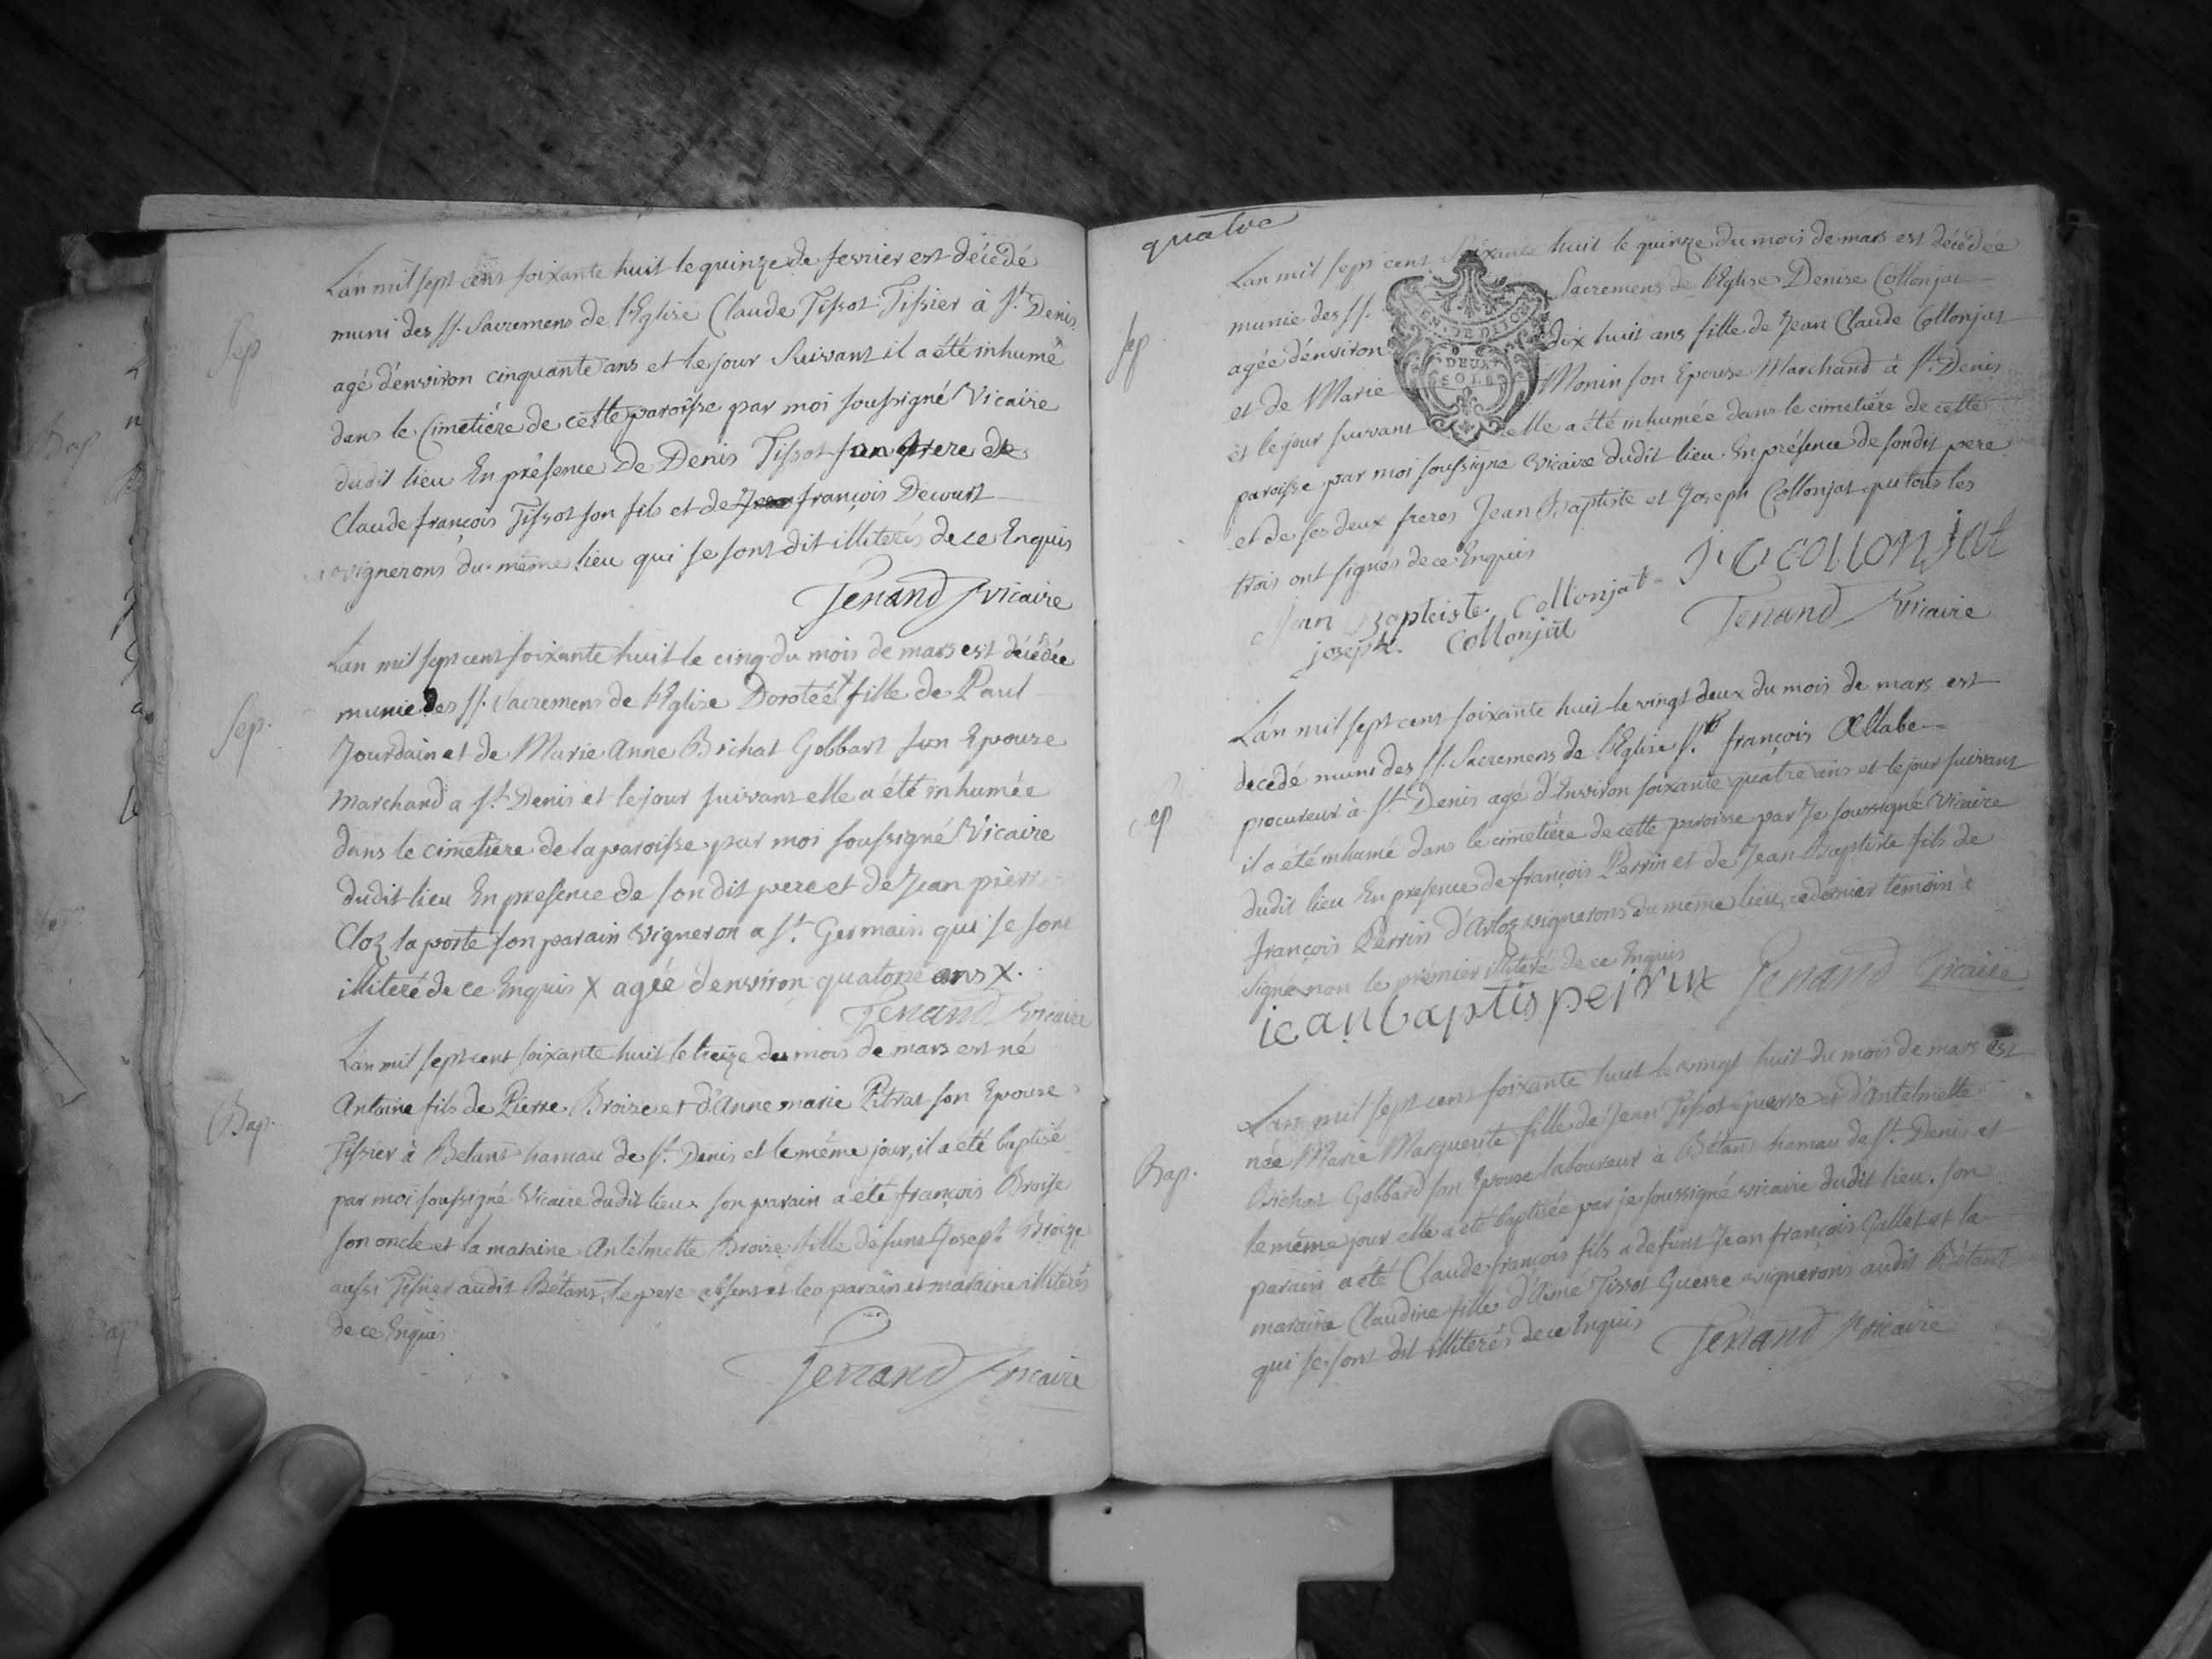 Sep
Lan mil sept cent soixante huit le quinze de fevrier est décedé
muni des SS. Sacremens de l'Eglise Claude Tissot Tissier à St. Denis
agé d'environ cinquante ans et le jour Suivant il a été inhumé
dans le Cimetiére de cette paroisse par moi soussigné Vicaire
dudit lieu En présence De Denis Tissot son frere et de
Claude françois Tissot son fils et de françois Decourt
vignerons du même lieu qui se sont dit illiterés de ce Enquis
Tenand Vicaire
Sep.
Lan mil sept cent soixante huit le cinq du mois de mars est décédée
munie des SS. Sacremens de l'Eglise Dorotée X fille de Paul
Jourdain et de Marie Anne Brichat Gobbart son Epouse
Marchand a St. Denis et le jour suivant elle a été inhumée
dans le cimetière de la paroisse par moi soussigné Vicaire
dudit lieu En presence de son dit pere et de Jean pierre
Cloz la porte son parain vigneron a St. Germain qui se sont
illiteré de ce Enquis X agée d'environ quatorze ans X.
Tenand vicaire
Bap.
Lan mil sept cent soixante huit le treize du mois de mars est né
Antoine fils de Pierre Broize et d'Anne marie Pitrat son Epouse
Tissier à Betant hamau de St. Denis et le même jour, il a été baptisé
par moi soussigné Vicaire dudit lieu son parain a eté françois Broise
son oncle et la maraine Antelmette Broise fille de funt Joseph Broize
aussi Tissier audit Bétant, le pere absent et les parain et maraine illiterés
de ce Enquis
Tenand Vicaire
quatre
Sep
Lan mil sept cent Soixante huit le quinze du mois de mars est décedée
munie des SS. Sacremens de l'Eglise Denise Collonjat
agée d'environ dix huit ans fille de Jean Claude Collonjat
et de Marie Monin son Epouse Marchand à St. Denis
et le jour suivant elle a été inhumée dans le cimetiére de cette
paroisse par moi soussigné vicaire dudit lieu En présence de sondit pere
et de ses deux freres Jean Baptiste et Joseph Collonjat qui tous les
trois ont signés de ce Enquis
DEUX
SOLS
J. C collonjat
Jean Bapteiste Collonjat
joseph Collonjat
Tenand Vicaire
Sep
Lan mil sept cent soixante huit le vingt deux du mois de mars est
decédé muni des SS. Sacremens de l'Eglise Sr. françois
procureur à St. Denis agé d'Environ soixante quatre ans et le jour suivant
il a été inhumé dans le cimetiére de cette paroisse par Je soussigné Vicaire
dudit lieu En presence de françois Perrin et de Jean Baptiste fils de
françois Perrin d'Arloz vignerons du même lieu, ce dernier temoin à
Signé non le premier illiteré de ce Enquis
Tenand Vicaire
Bap.
Lan mil sept cent soixante huit le vingt huit du mois de mars est
née Marie Marguerite fille de Jean Tissot Guerre et d'Antelmette
Brichat Gobbard son Epouse laboureur à Bétant hamau de St. Denis et
le même jour elle a eté baptisée par je soussigné vicaire dudit lieu. son
parain a eté Claude françois fils a defunt Jean françois Gallet et la
maraine Claudine fille d'Aimé Tissot Guerre vignerons audit Bétant
qui se sont dit illiterés de ce Enquis
Tenand Vicaire